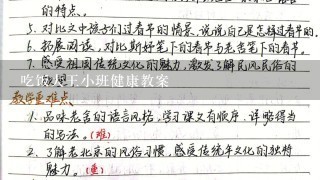 的特点。
5. 对比文中孩子们过春节的情景,说说自己是怎样过春节的。
6. 拓展阅读,对比斯妤笔下的春节与老舍笔下的春节。
7. 感受祖国传统文化的魅力,激发了解民风民俗的
吃饭大王小班健康教案
教学重难点、
1. 品味老舍的语言风格,学习课文有顺序、详略得当
的写法。(难)
2. 了解老北京的风俗习惯,感受传统年文化的独特
魅力。(重)